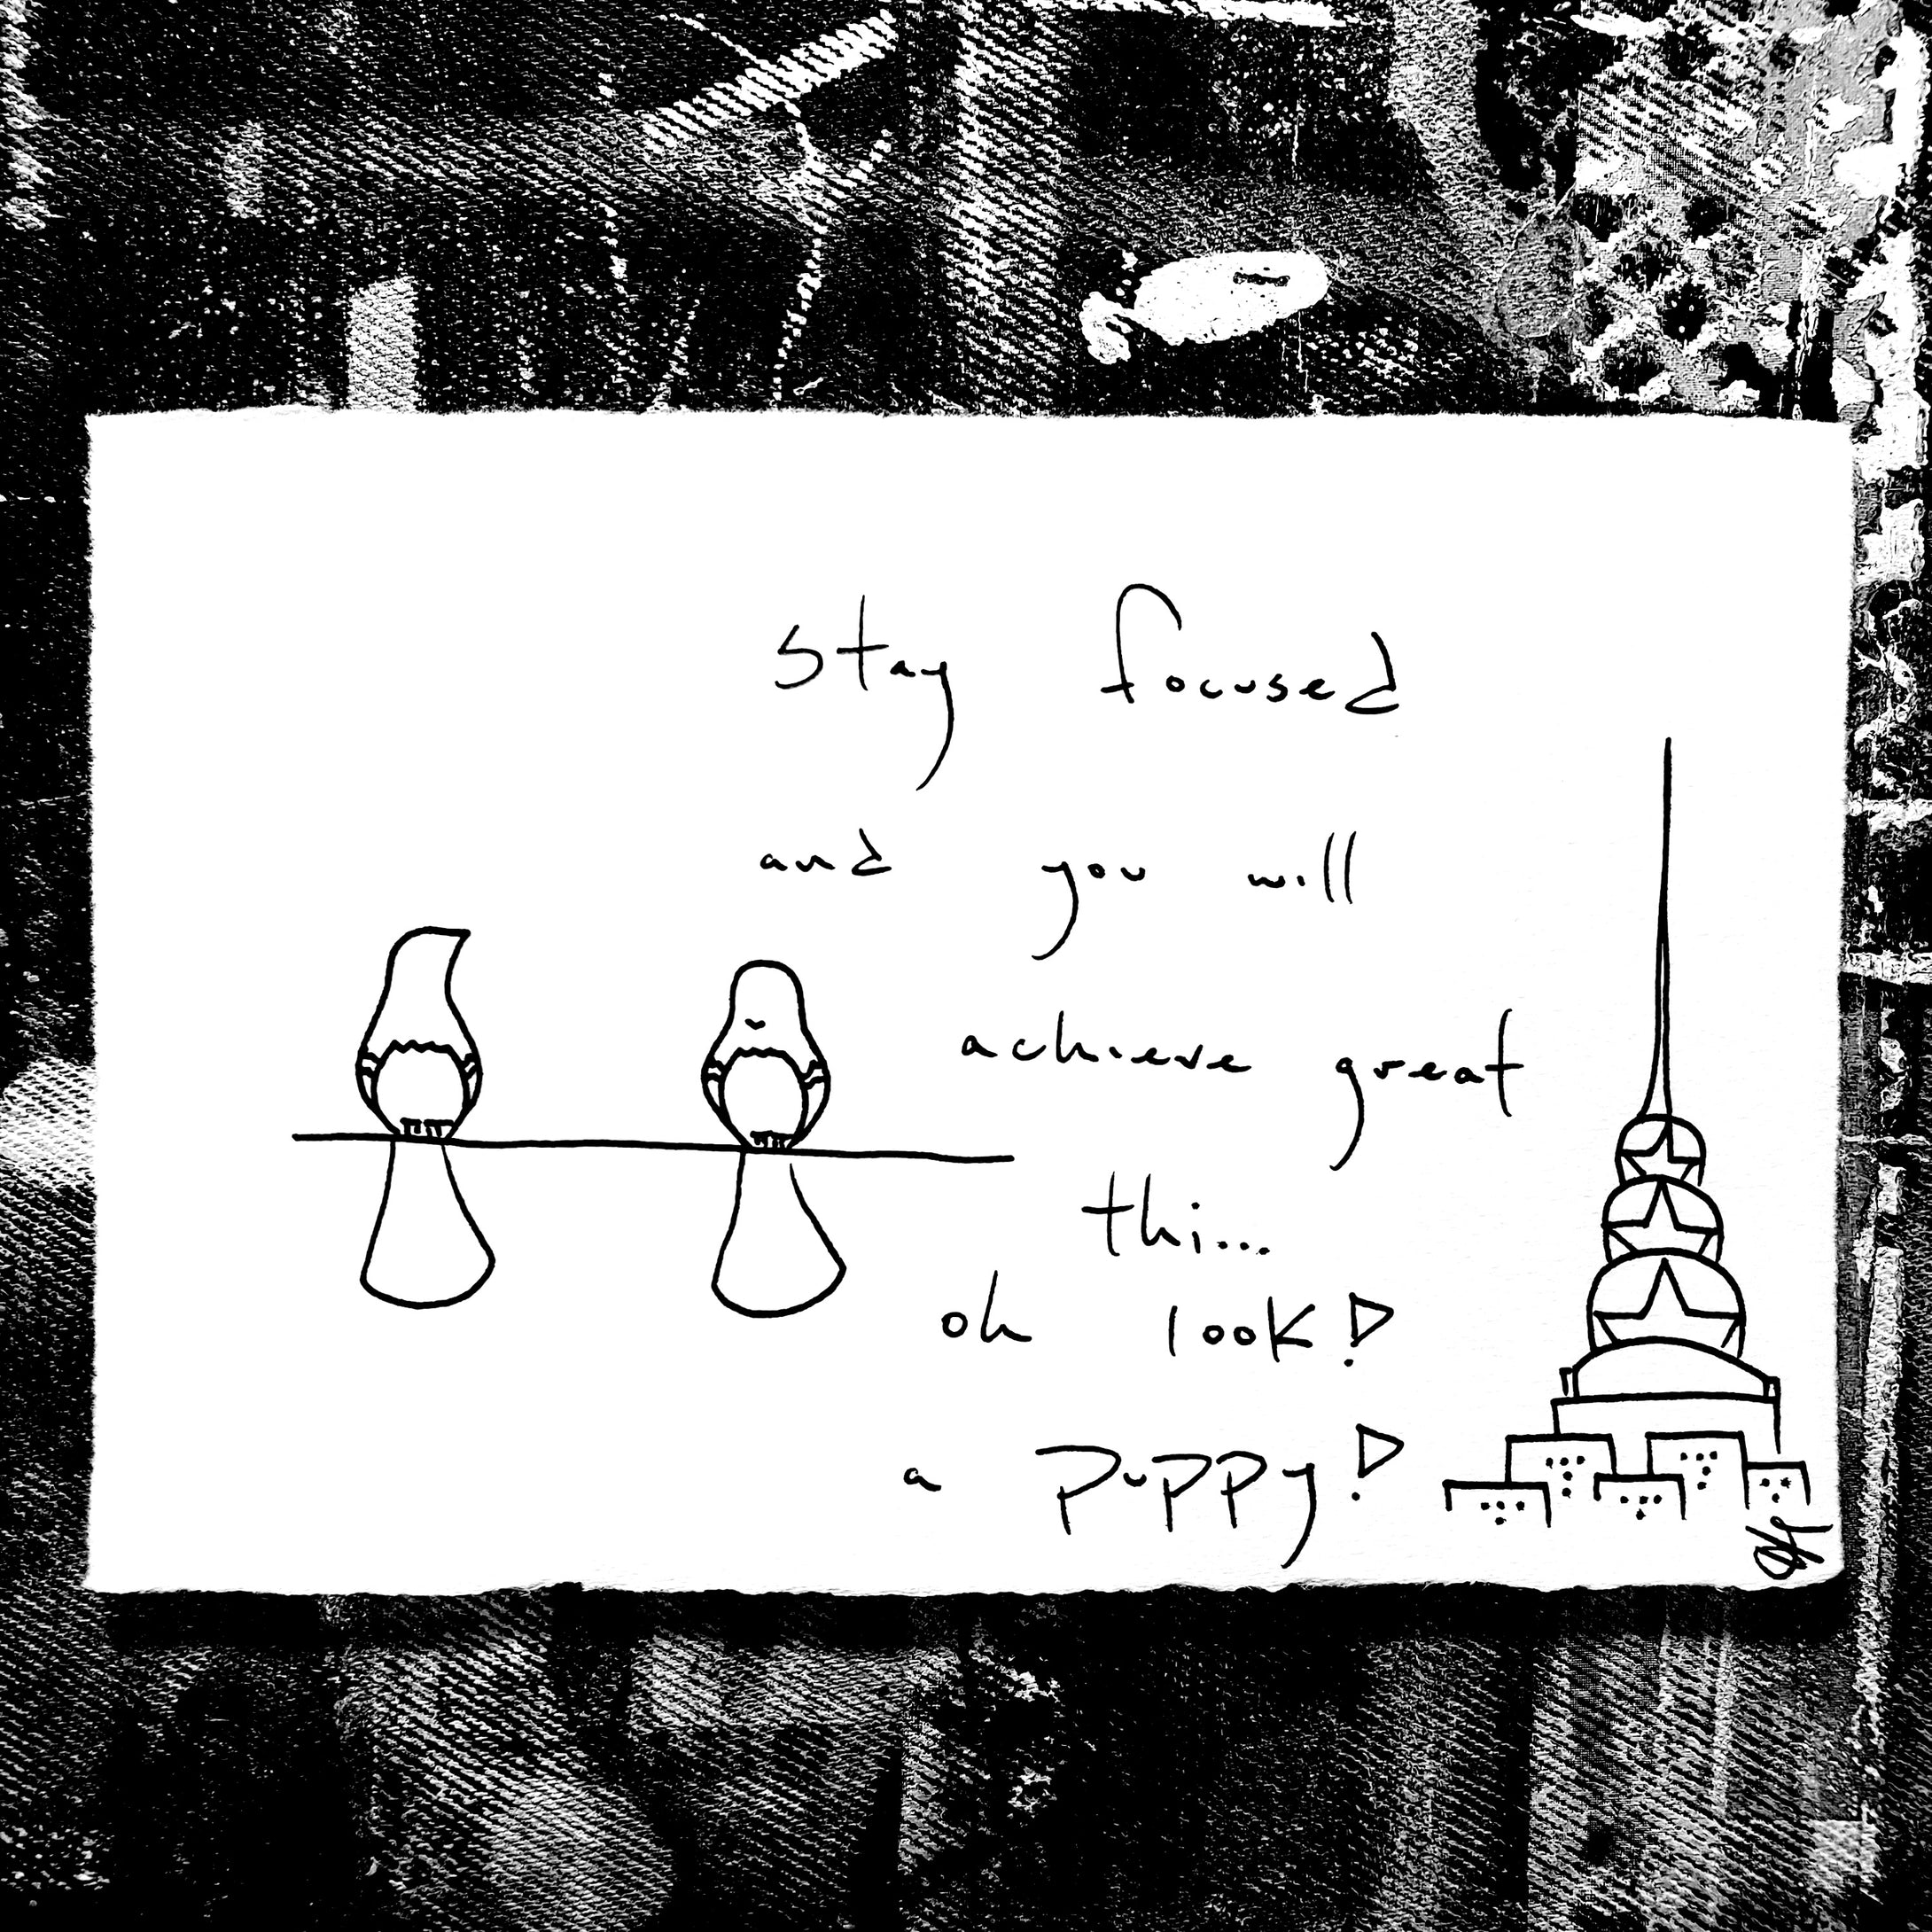 stay focused
and you will
achieve great
thi...
oh look!
a puppy!